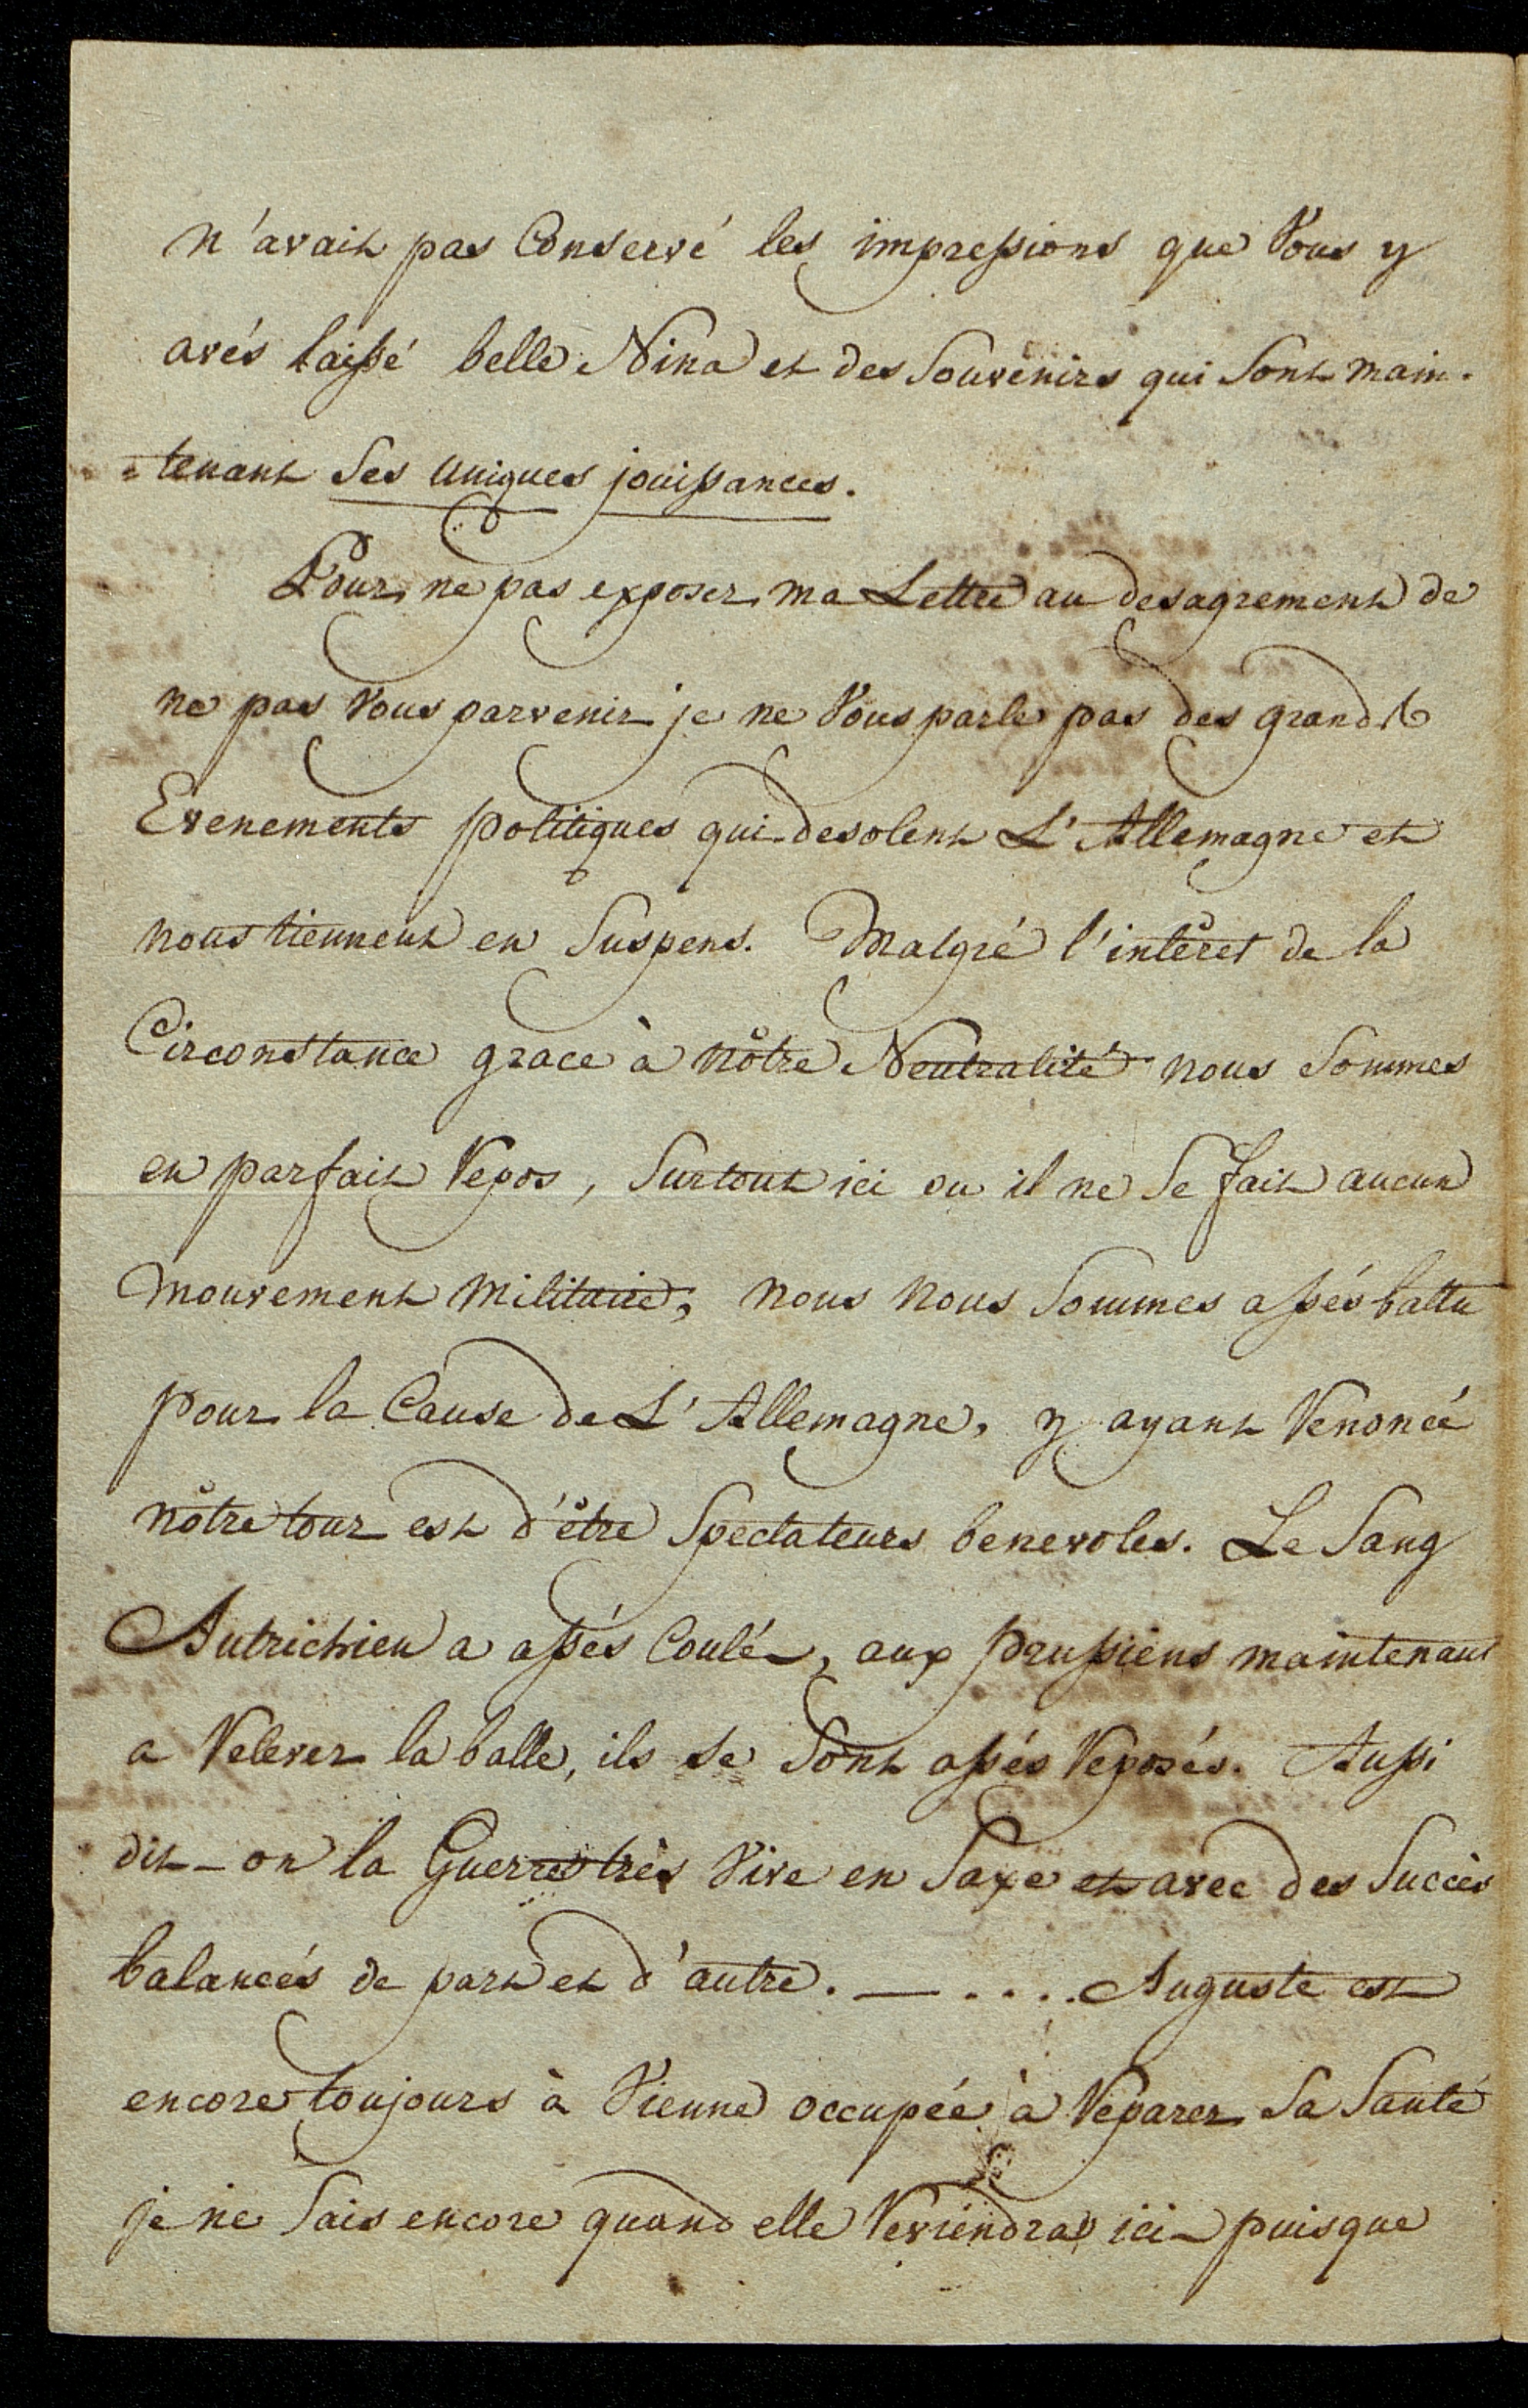 n'avait pas Conservé les impressions que Vous y
avés laissé belle Nina et des Souvenirs qui Sont main-
-tenant Ses uniques jouissances.
Pour ne pas exposer ma Lettre au desagrement de
ne pas Vous parvenir je ne Vous parle pas des grands
Evenements politiques qui desolent L'Allemagne et
nous tiennent en Suspens. Malgré l'intêret de la
Circonstance grace à nôtre Neutralité nous Sommes
en parfait Repos, Surtout ici ou il ne Se fait aucun
mouvement militaire, nous nous Sommes assés battu
pour la Cause de L'Allemagne, y ayant Renoncé
nôtre tour est d'être Spectateurs benevoles. Le Sang
Autrichien a assés Coulé, aux prussiens maintenant
a Relever la balle, ils se Sont assés Reposés. Aussi
dit-on la Guerre très Vive en Saxe et avec des Succès
balancés de part et d'autre. — .... Auguste est
encore toujours à Vienne occupée à Reparer Sa Santé
je ne Sais encore quand elle Reviendra ici puisque